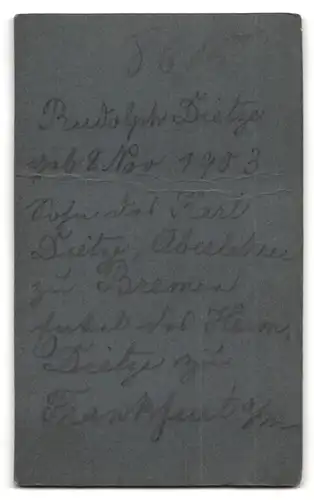 Rudolph Dietze
geb 8 Nov 1903
Sohn des Karl
Dietze, Oberlehrer
zu Bremen
Enkel des Herm.
Dietze zu
Frankfurt a/m